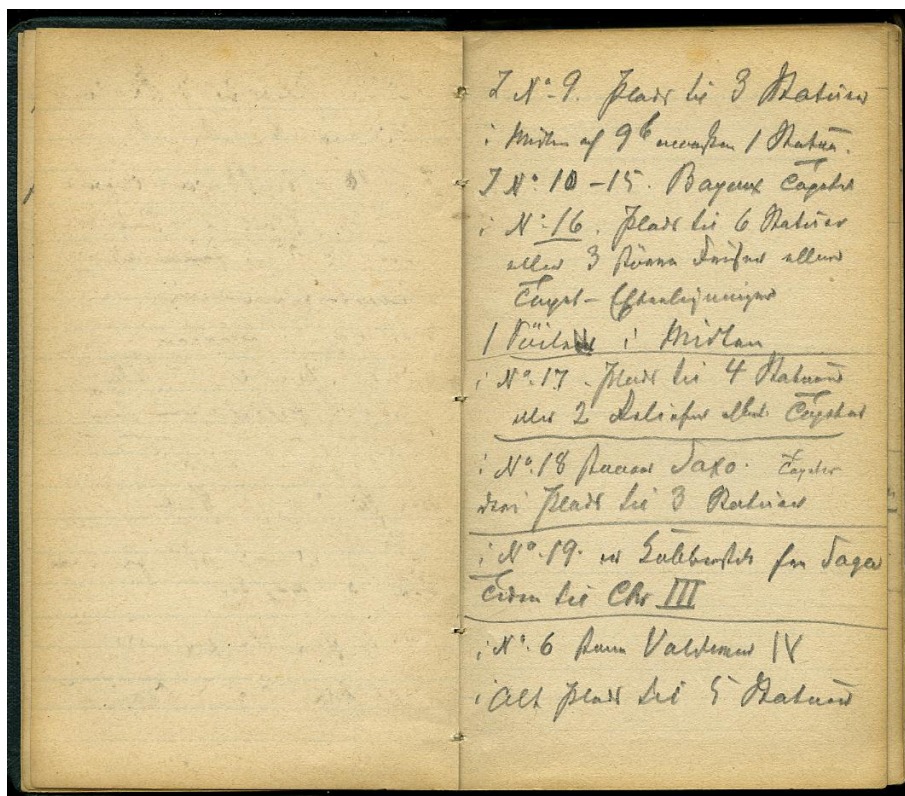 I N° 9. Plads til 3 Statuer
i Midten af 9b 1 Statue.
I N° 10-15. Bayeux Tapetet
i N° 16. Plads til 6 Statuer
eller 3 store eller
Tapet-Efterligninger
1 i Midten
i N° 17. Plads til 4 Statuer
eller 2 Relieffer eller Tapeter
i N° 18 Saxo. Tapeter
Plads til 3 Statuer
i N° 19. fra Saga
Tiden til Chr III
i N° 6 Valdemar IV
i Alt Plads til 5 Statuer